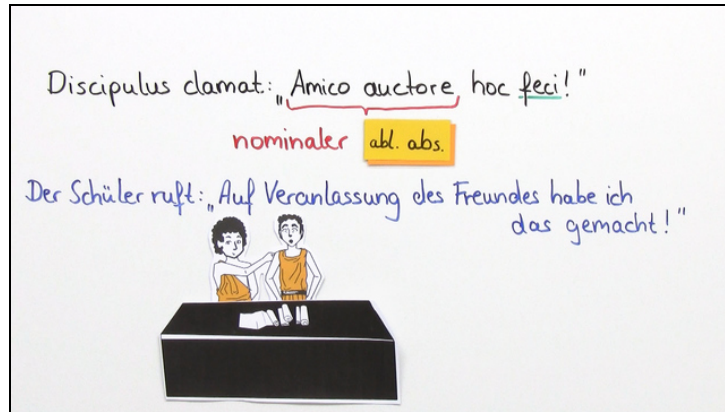 Discipulus clamat: „Amico auctore hoc feci!"
nominaler abl. abs.
Der Schüler ruft: „Auf Veranlassung des Freundes habe ich
das gemacht!"